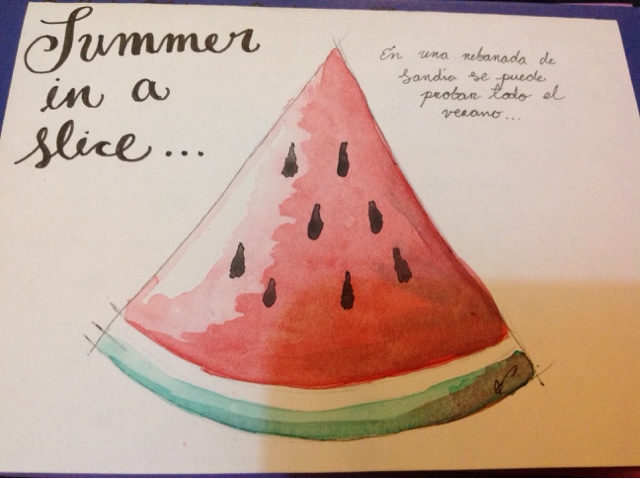 Summer
in a
slice...
En una rebanada de
sandía se puede
probar todo el
verano...